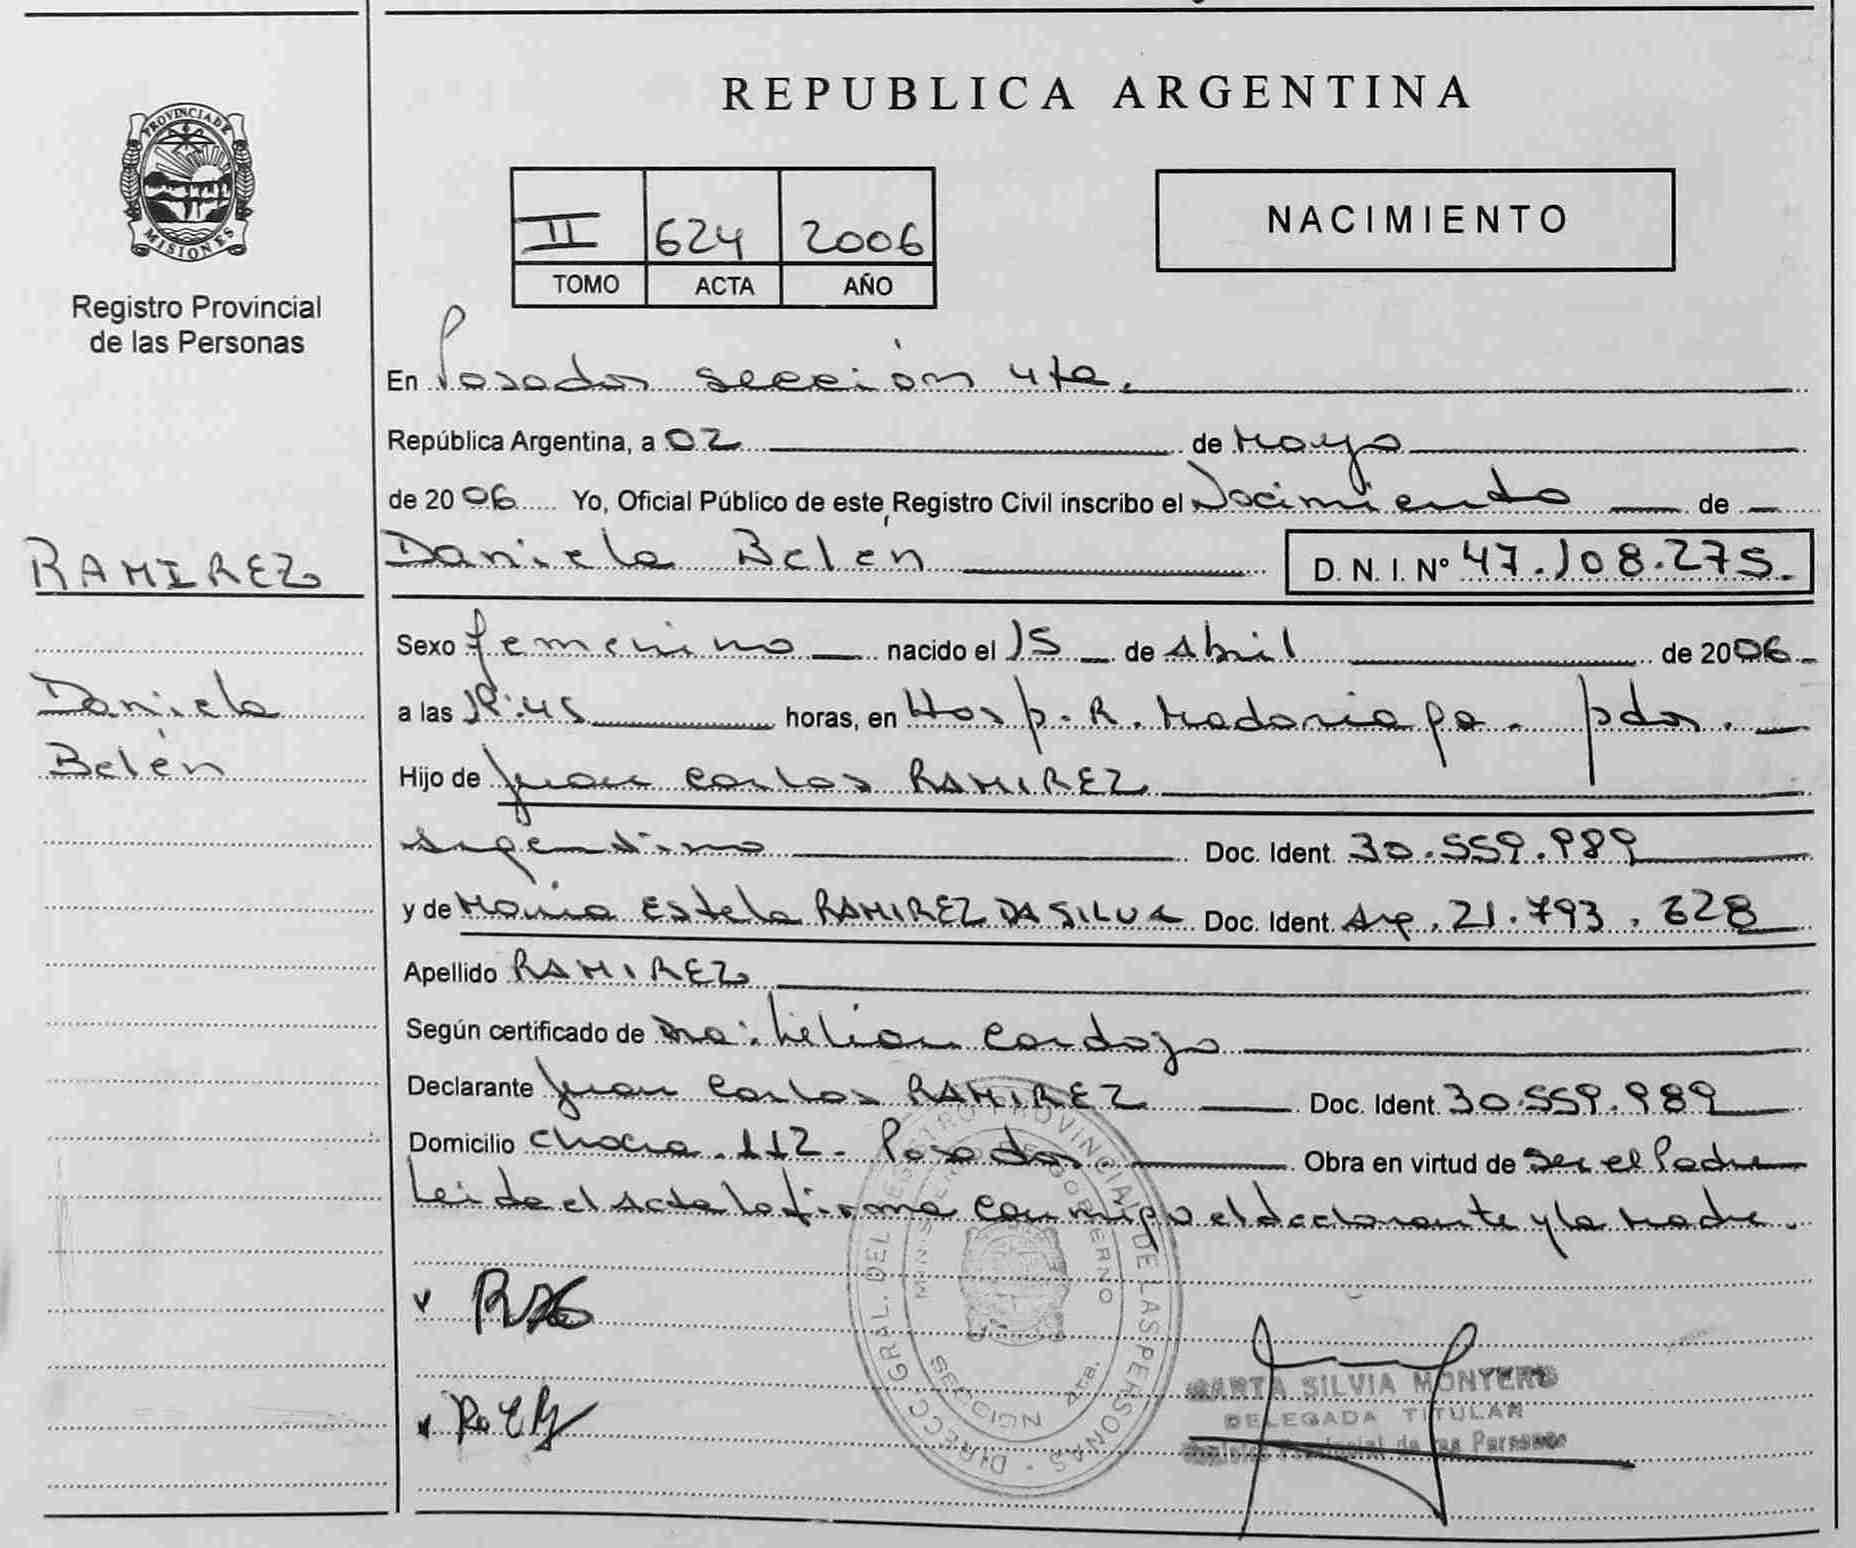 REPUBLICA ARGENTINA
PROVINCIA DE MISIONES
Registro Provincial
de las Personas
II 624 2006
TOMO ACTA AÑO
NACIMIENTO
En Posadas sección 4ta.
República Argentina, a 02 de Mayo
de 2006 Yo, Oficial Público de este Registro Civil inscribo el Nacimiento de
RAMIREZ
Daniela Belén
Daniela Belén D. N. I. Nº 47.108.275.
Sexo femenino nacido el 15 de Abril de 2006
a las :45 horas, en Hosp. R. Madariaga - pdas.
Hijo de Juan Carlos RAMIREZ
Argentino Doc. Ident. 30.559.989
y de Maria Estela RAMIREZ DA SILVA Doc. Ident. Arg. 21.793.628
Apellido RAMIREZ
Según certificado de Dra: Lilian Cardozo
Declarante Juan Carlos RAMIREZ Doc. Ident. 30.559.989
Domicilio Chacra. 112 - Posadas Obra en virtud de Ser el Padre
Leida el Acta la firma conmigo el declarante y la Madre.
DIRECC. GRAL. DEL REGISTRO PROVINCIAL DE LAS PERSONAS
MINISTERIO DE GOBIERNO
MISIONES
MARTA SILVIA MONTERO
DELEGADA TITULAR
Registro Provincial de las Personas